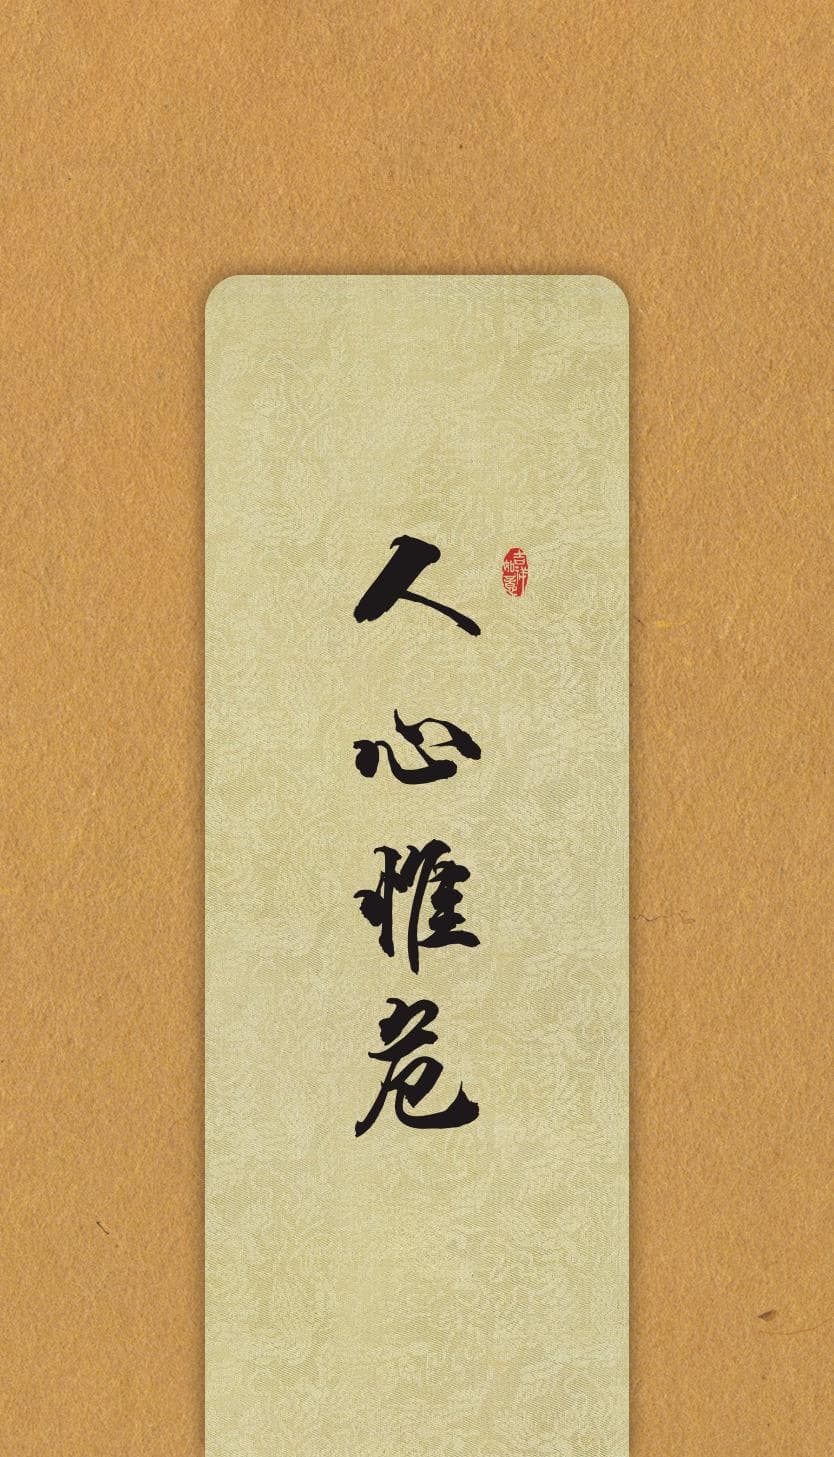 人心惟危
吉祥如意